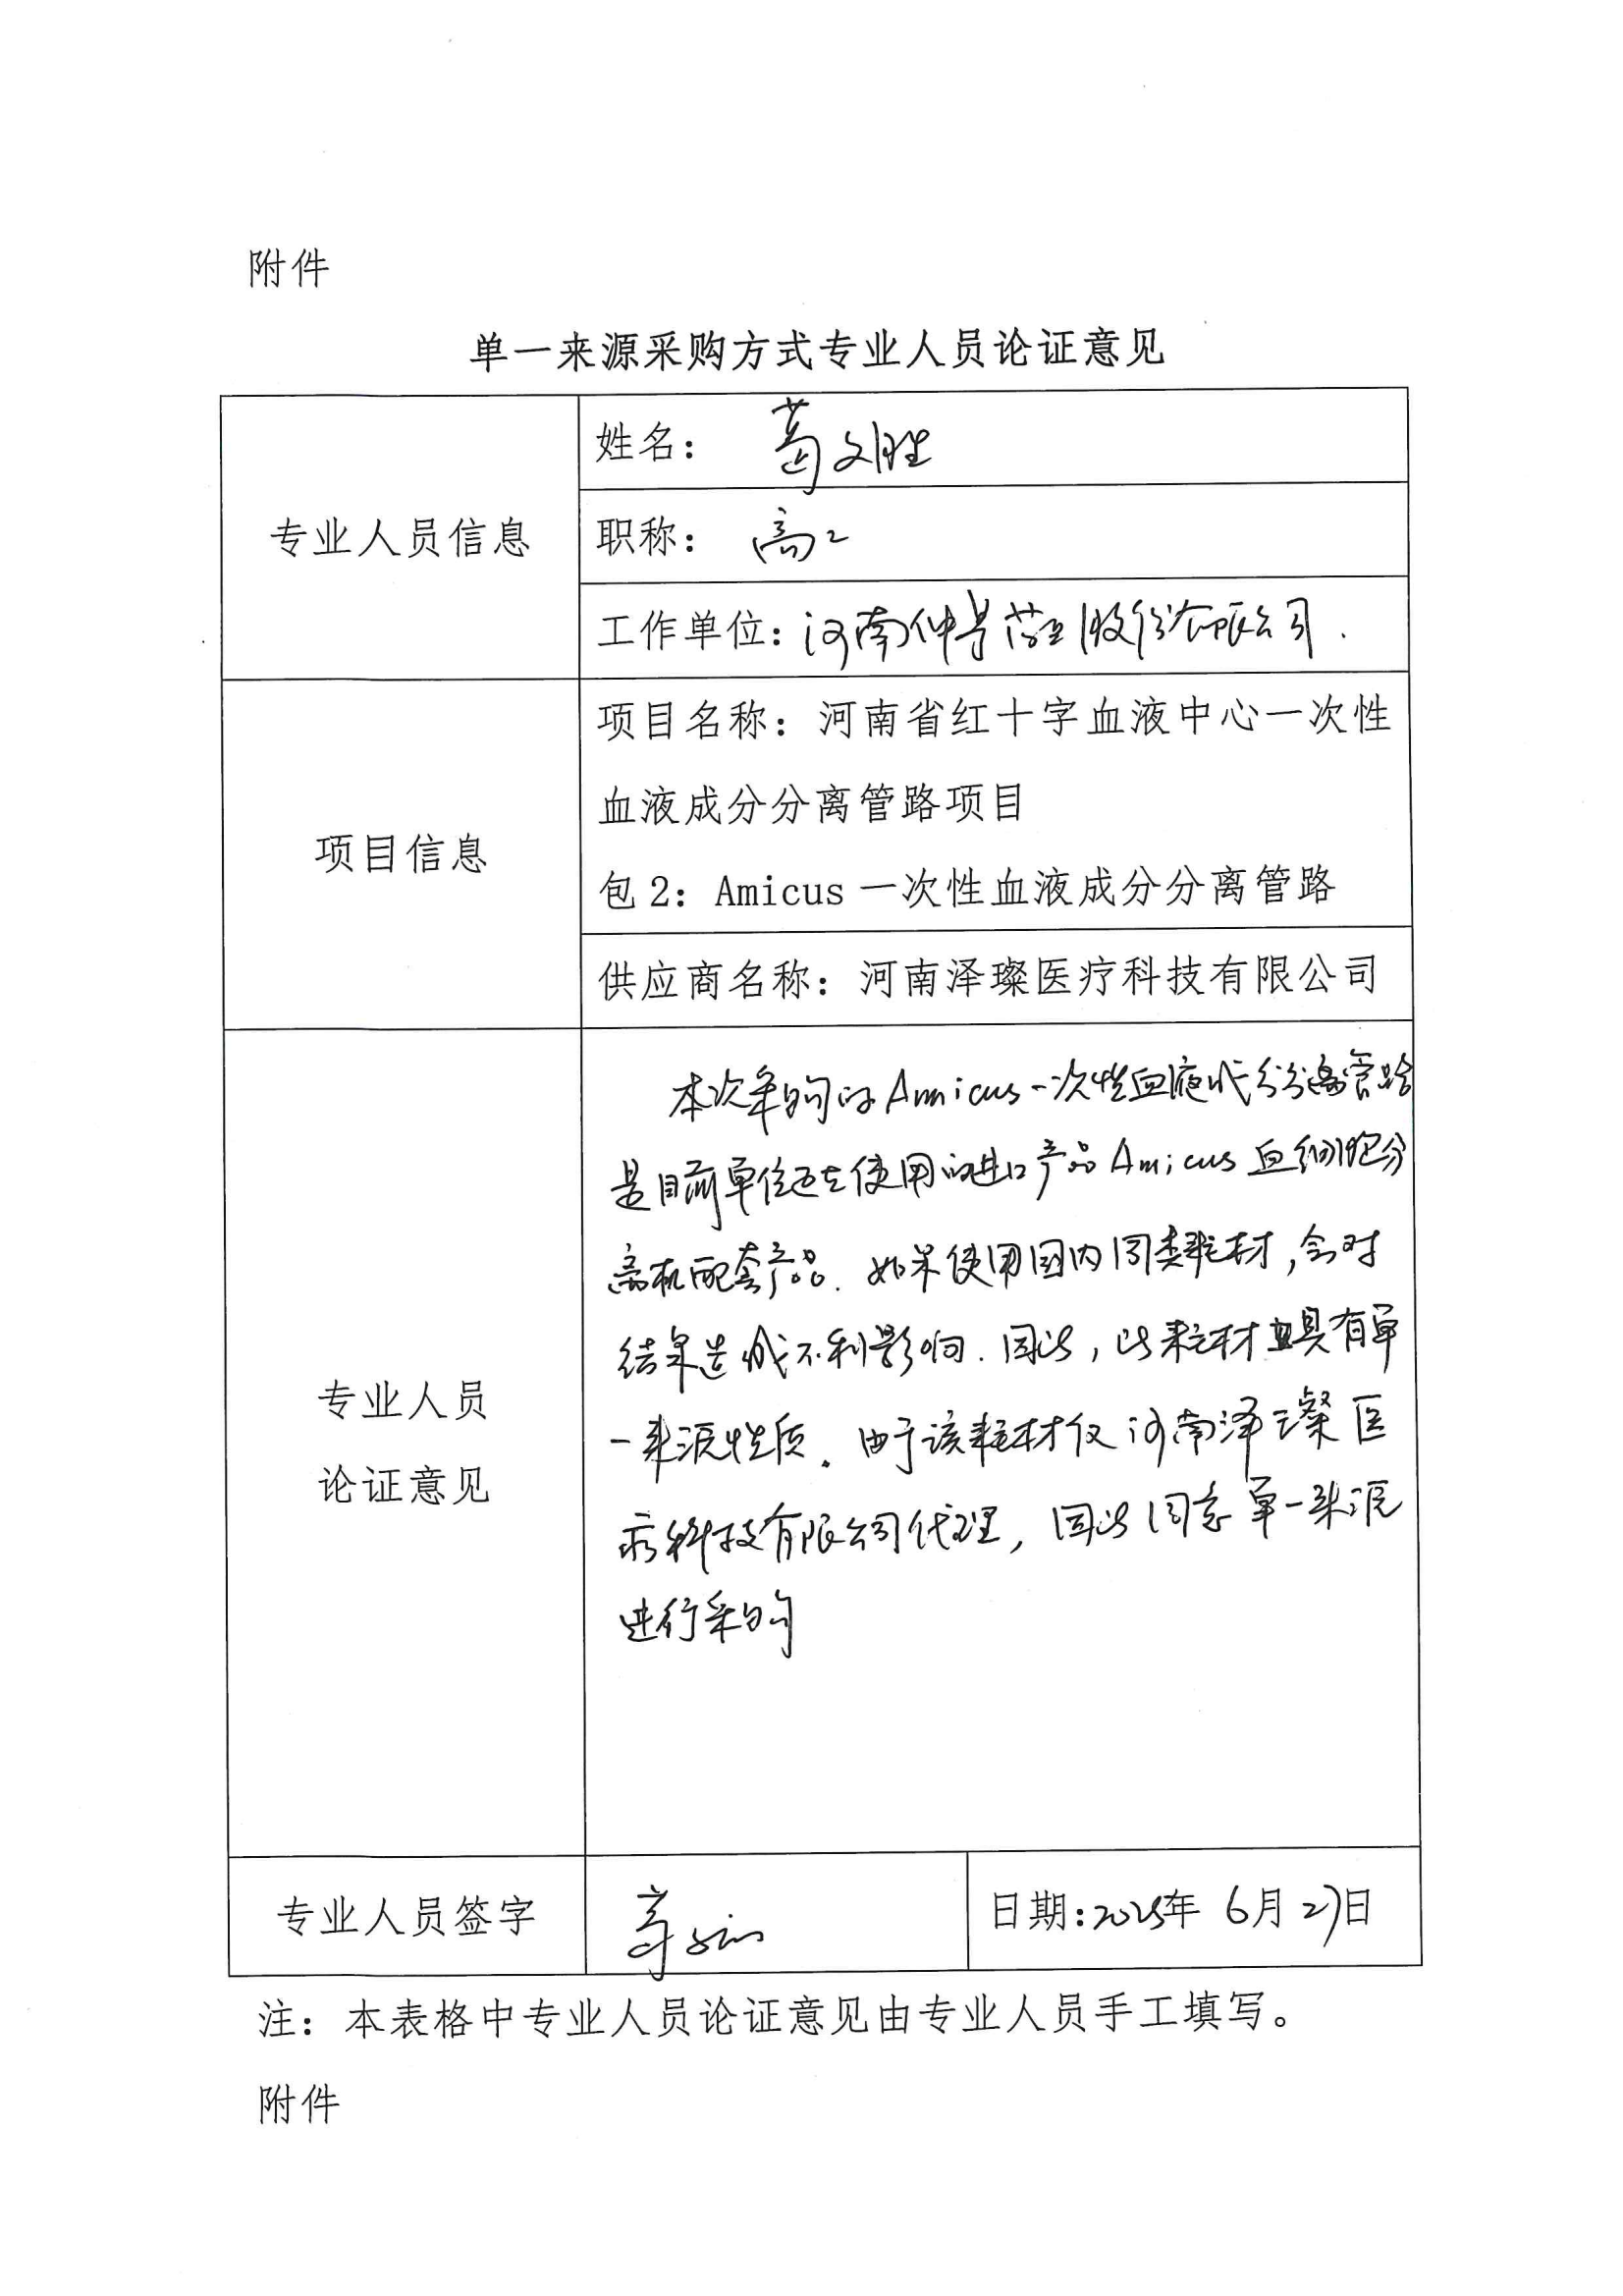 附件
单一来源采购方式专业人员论证意见
专业人员信息
姓名： 葛文胜
职称： 高工
工作单位：河南仲景药业股份有限公司.
项目信息
项目名称：河南省红十字血液中心一次性
血液成分分离管路项目
包2：Amicus一次性血液成分分离管路
供应商名称：河南泽璨医疗科技有限公司
专业人员
论证意见
本次采购的Amicus一次性血液成分分离管路
是目前单位正在使用的进口产品Amicus血细胞分
离机配套产品.如果使用国内同类耗材,会对
结果造成不利影响.因此,此耗材具有单
一来源性质。由于该耗材仅河南泽璨医
疗科技有限公司代理,因此同意单一来源
进行采购
专业人员签字
日期:2025年 6月27日
注：本表格中专业人员论证意见由专业人员手工填写。
附件